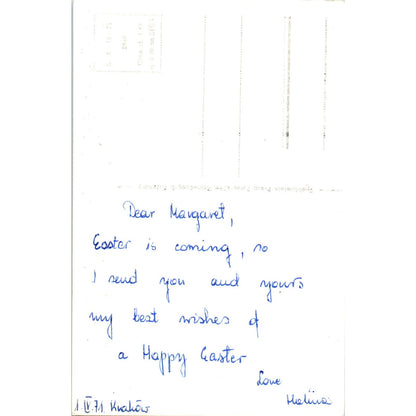 Dear Margaret,
Easter is coming, so
I send you and yours
my best wishes of
a Happy Easter
Love
Halina
1.IV.71 Kraków